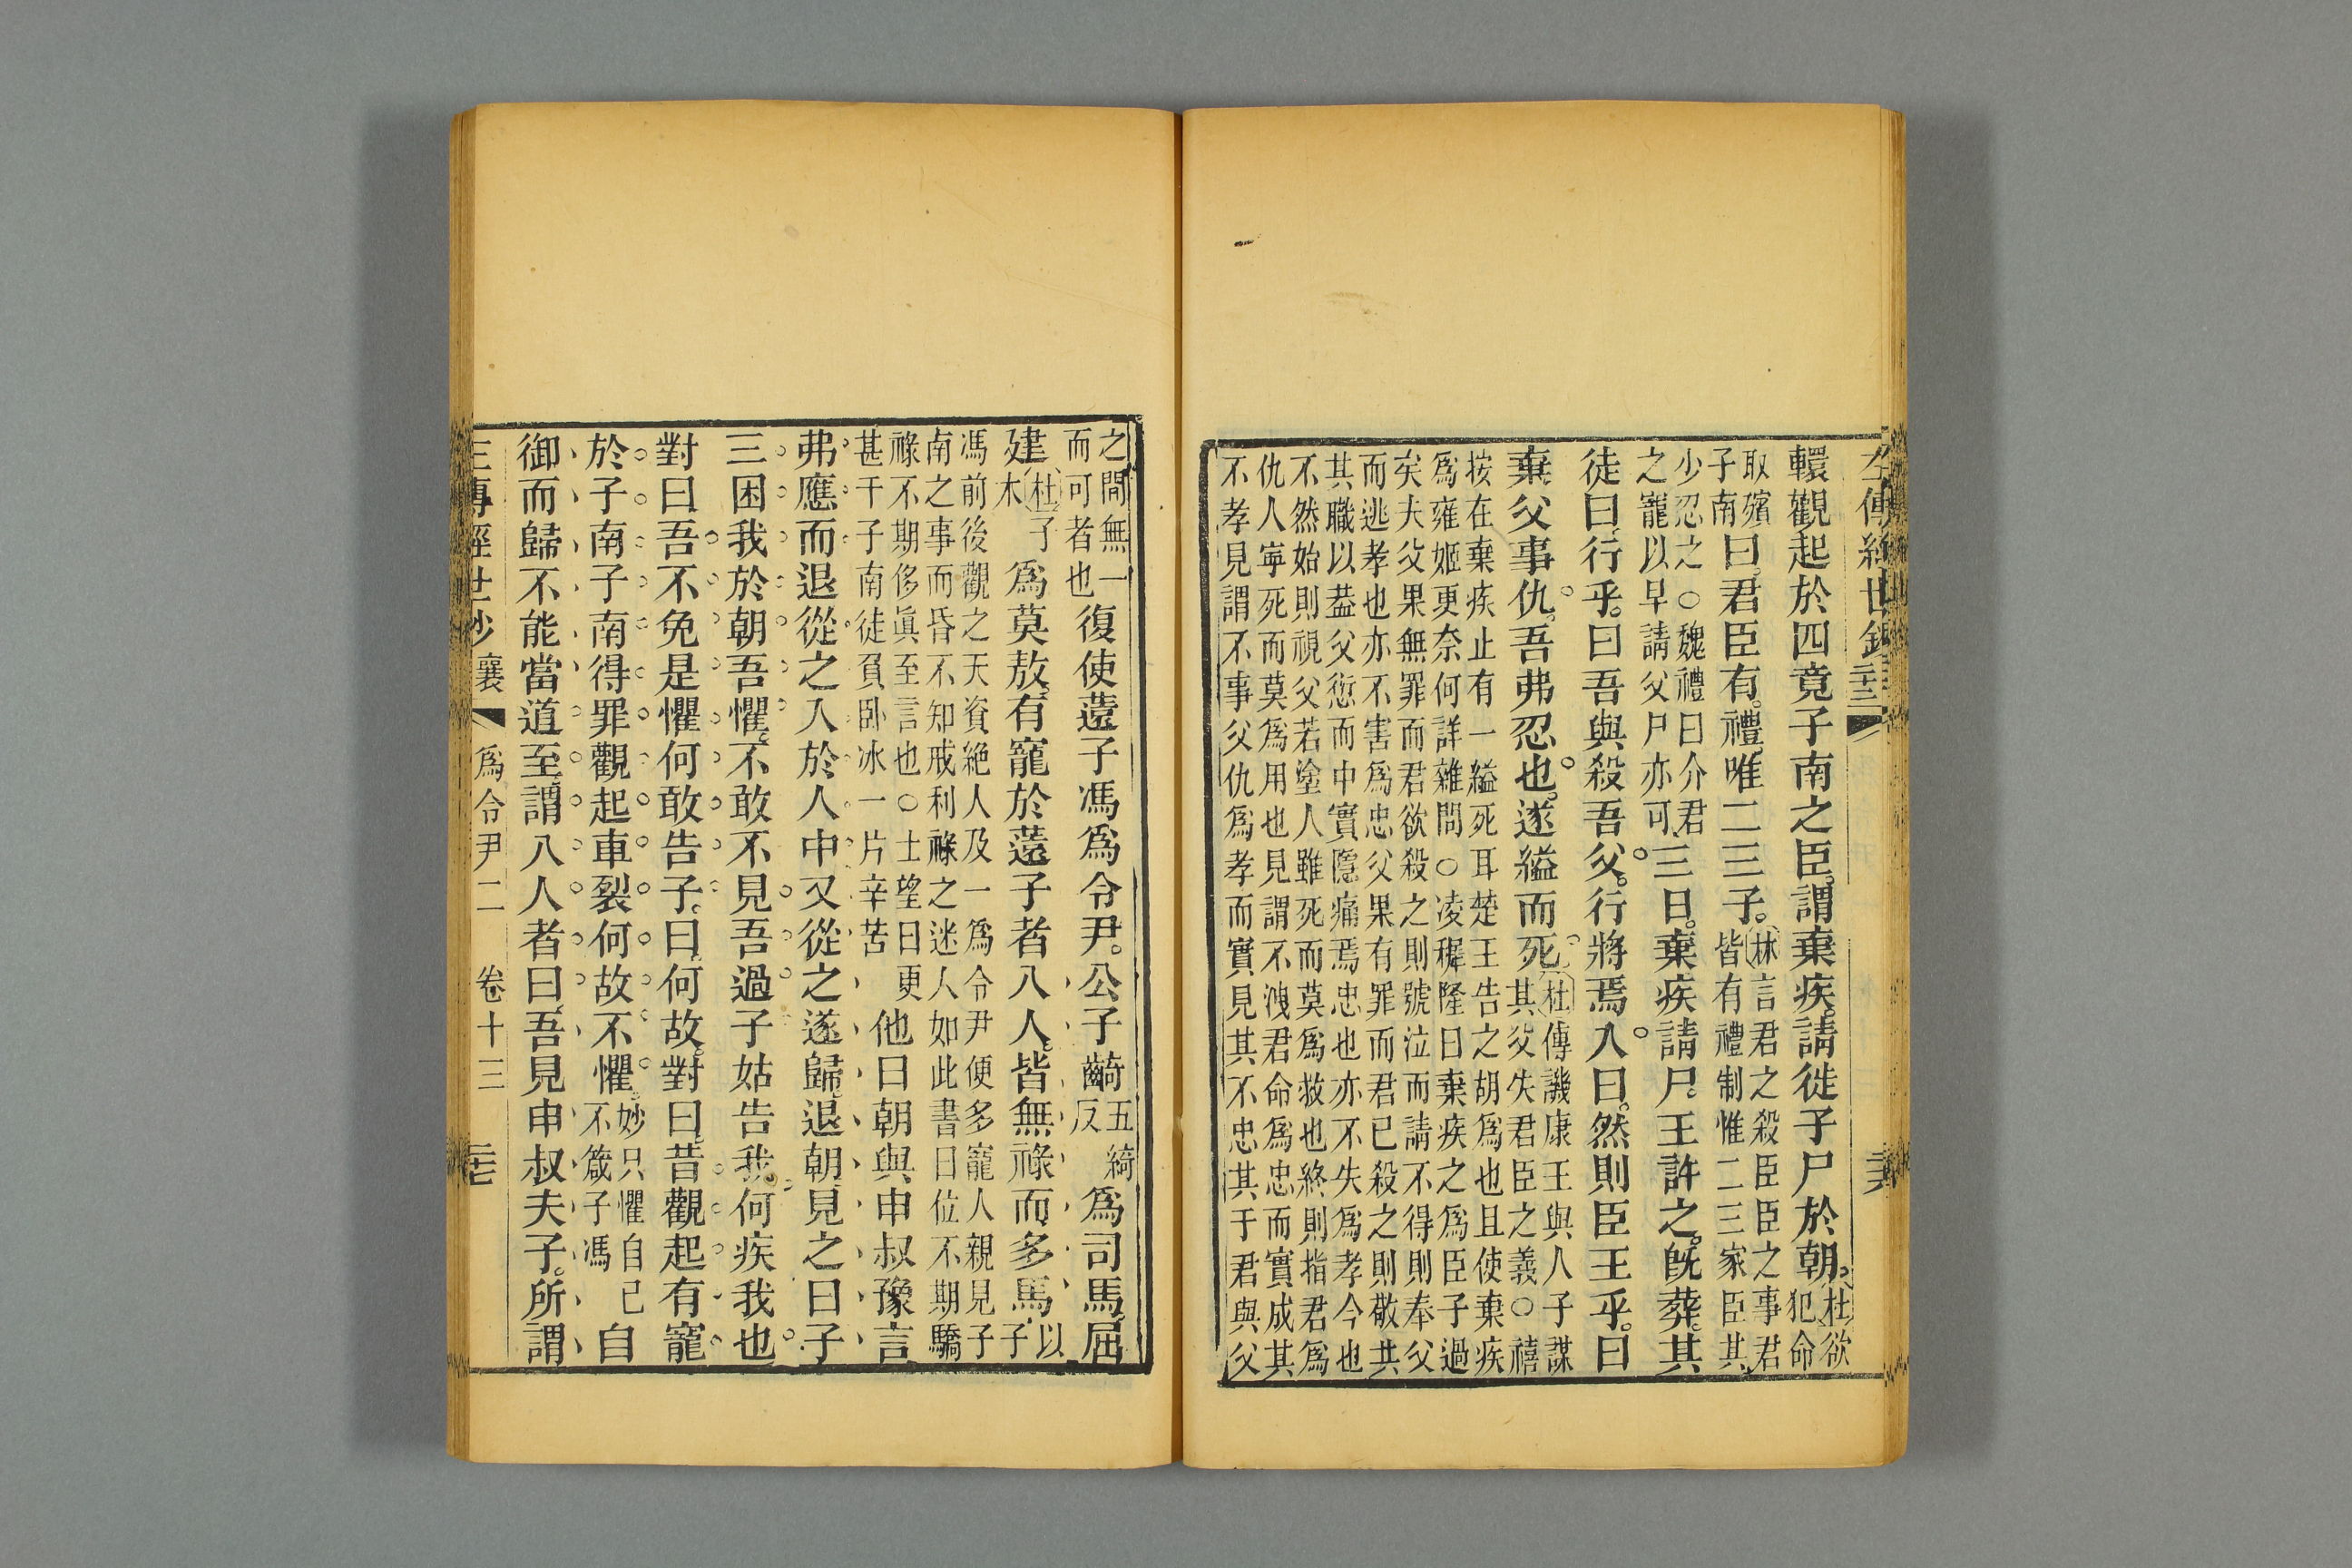 左傳經世鈔
轘觀起於四竟子南之臣謂棄疾請徙子尸於朝杜欲
犯命
取殯
子南曰君臣有禮唯二三子林言君之殺臣臣之事君
皆有禮制惟二三家臣其
少忍之○魏禮曰介君
之寵以早請父尸亦可三日棄疾請尸王許之旣葬其
徒曰行乎曰吾與殺吾父行將焉入曰然則臣王乎曰
棄父事仇吾弗忍也遂縊而死杜傳譏康王與人子謀
其父失君臣之義○禧
按在棄疾止有一縊死耳楚王告之胡爲也且使棄疾
爲雍姬更奈何詳雜問○凌穉隆曰棄疾之爲臣子過
矣夫父果無罪而君欲殺之則號泣而請不得則奉父
而逃孝也亦不害爲忠父果有罪而君已殺之則敬共
其職以葢父愆而中實隱痛焉忠也亦不失爲孝今也
不然始則視父若塗人雖死而莫爲救也終則指君爲
仇人寧死而莫爲用也見謂不洩君命爲忠而實成其
不孝見謂不事父仇爲孝而實見其不忠其于君與父
之間無一
而可者也復使薳子馮爲令尹公子齮五綺
反爲司馬屈
建杜子
木爲莫敖有寵於薳子者八人皆無祿而多馬以
子
馮前後觀之天資絕人及一爲令尹便多寵人親見子
南之事而昏不知戒利祿之迷人如此書曰位不期驕
祿不期侈眞至言也○士望曰更
甚干子南徒負卧冰一片辛苦他日朝與申叔豫言
弗應而退從之入於人中又從之遂歸退朝見之曰子
三困我於朝吾懼不敢不見吾過子姑告我何疾我也
對曰吾不免是懼何敢告子曰何故對曰昔觀起有寵
於子南子南得罪觀起車裂何故不懼妙只懼自己
不箴子馮自
御而歸不能當道至謂八人者曰吾見申叔夫子所謂
左傳經世鈔 襄 爲令尹二 卷十三 二十七